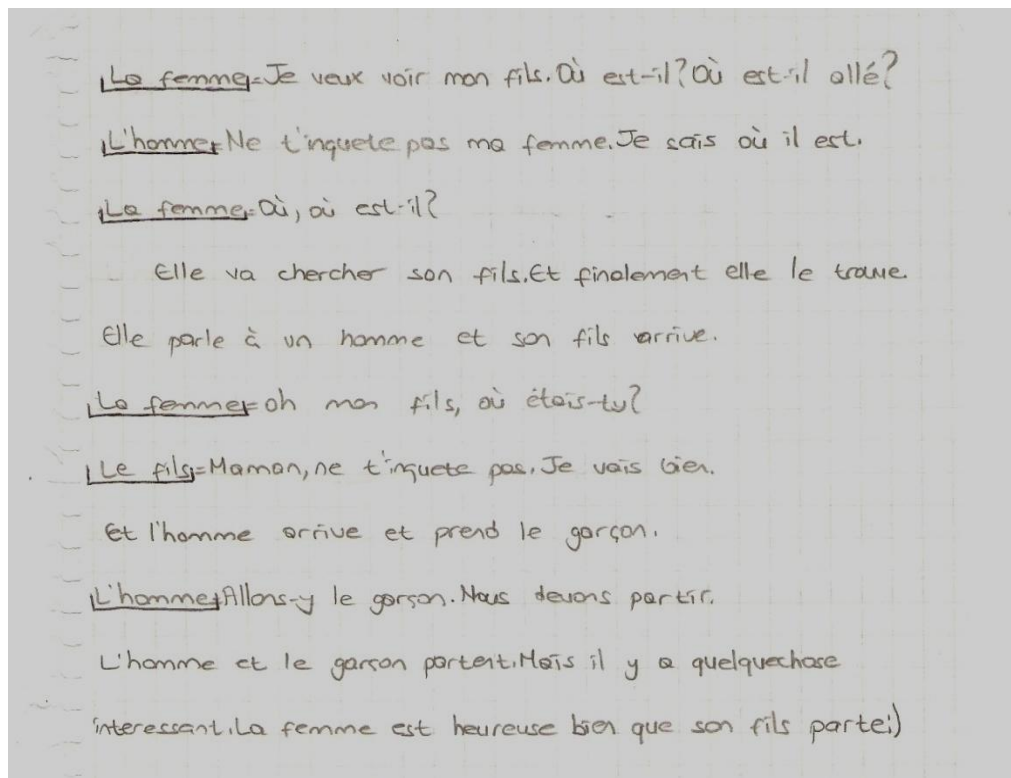 La femme=Je veux voir mon fils.Où est-il?Où est-il allé?
L'homme=Ne t'inquete pas ma femme.Je sais où il est.
La femme=Où, où est-il?
Elle va chercher son fils.Et finalement elle le trouve.
Elle parle à un homme et son fils arrive.
La femme=oh mon fils, où étais-tu?
Le fils=Maman,ne t'inquete pas.Je vais bien.
Et l'homme arrive et prend le garçon.
L'homme=Allons-y le garçon.Nous devons partir.
L'homme et le garçon partent.Mais il y a quelquechose
interessant.La femme est heureuse bien que son fils parte:)